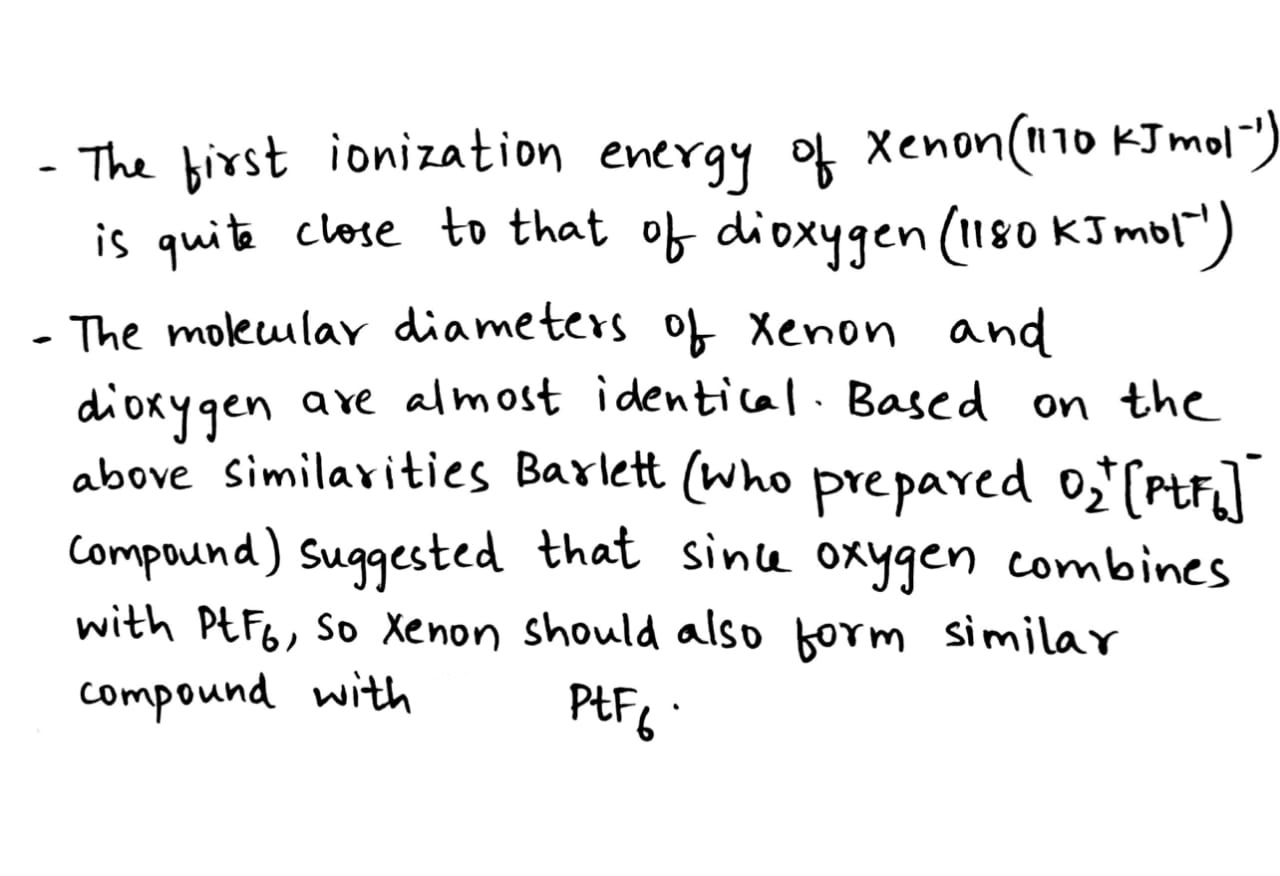 - The first ionization energy of Xenon (1170 KJ mol⁻¹)
is quite close to that of dioxygen (1180 KJ mol⁻¹)
- The molecular diameters of Xenon and
dioxygen are almost identical. Based on the
above similarities Barlett (who prepared O₂⁺[PtF₆]⁻
compound) suggested that since oxygen combines
with PtF₆, so Xenon should also form similar
compound with PtF₆.